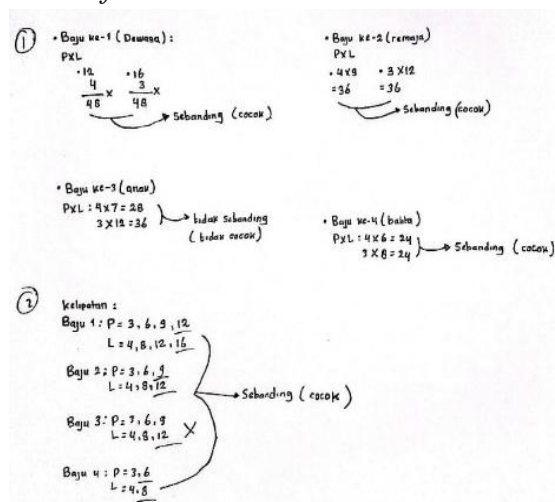 ①
• Baju ke-1 (Dewasa) :
PXL
• 12 • 16
4 x 3 x
48 48
→ Sebanding (cocok)
• Baju ke-2 (remaja)
PXL
• 4x9 • 3 x12
=36 =36
→ Sebanding (cocok)
• Baju ke-3 (anak)
PXL : 4x7 = 28
3 X12 = 36
→ tidak Sebanding
(tidak cocok)
• Baju ke-4 (balita)
PXL : 4x6 = 24
3 x 8 = 24
→ Sebanding (cocok)
②
kelipatan :
Baju 1 : P = 3, 6, 9, 12
L = 4, 8, 12, 16
Baju 2 : P = 3, 6, 9
L = 4, 8, 12
→ Sebanding (cocok)
Baju 3 : P = 7, 6, 9
L = 4, 8, 12 X
Baju 4 : P = 3, 6
L = 4, 8